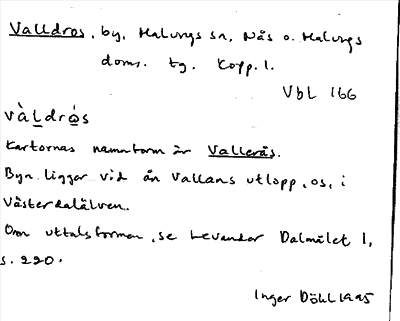 Valldros, by, Malungs sn, Nås o. Malungs
doms. tg. Kopp. l.
Vbl 166
vàl̲drå̲s
Kartornas namnform är Vallerås.
Byn ligger vid ån Vallans utlopp, os, i
Västerdalälven.
Om uttalsformen, se Levander Dalmålet I,
s. 220.
Inger Döhl 1995